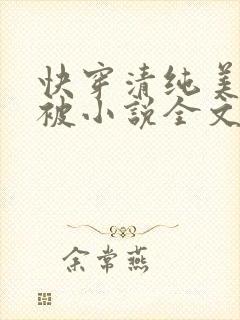 快穿清纯美
被小说全文
余常燕